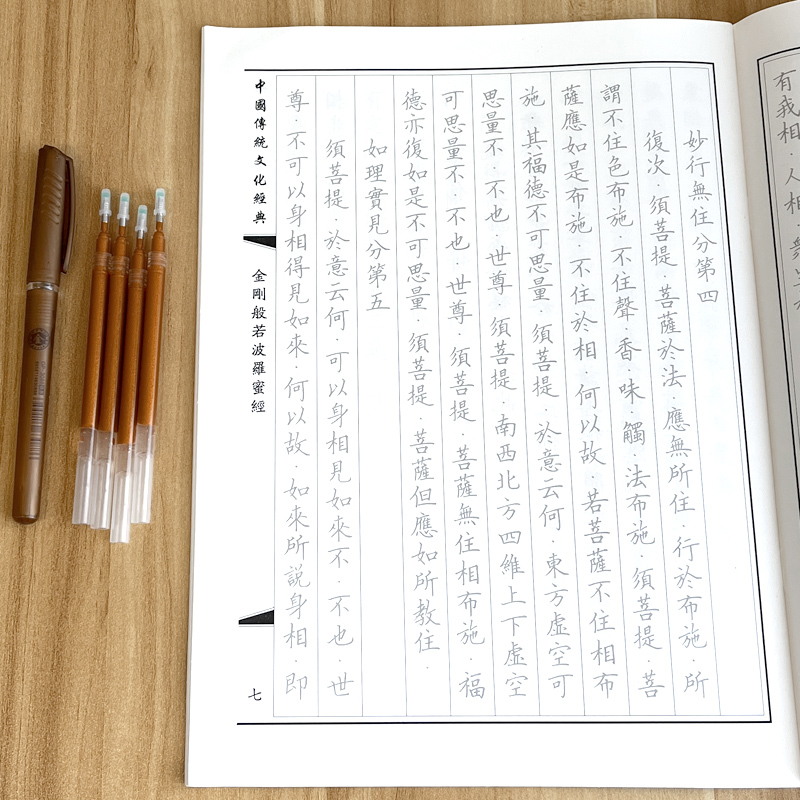 妙行無住分第四
復次．須菩提．菩薩於法．應無所住．行於布施．所
謂不住色布施．不住聲．香．味．觸．法布施．須菩提．菩
薩應如是布施．不住於相．何以故．若菩薩不住相布
施．其福德不可思量．須菩提．於意云何．東方虛空可
思量不．不也．世尊．須菩提．南西北方四維上下虛空
可思量不．不也．世尊．須菩提．菩薩無住相布施．福
德亦復如是不可思量．須菩提．菩薩但應如所教住．
如理實見分第五
須菩提．於意云何．可以身相見如來不．不也．世
尊．不可以身相得見如來．何以故．如來所說身相．即
中國傳統文化經典
金剛般若波羅蜜經
七
有我相．人相．